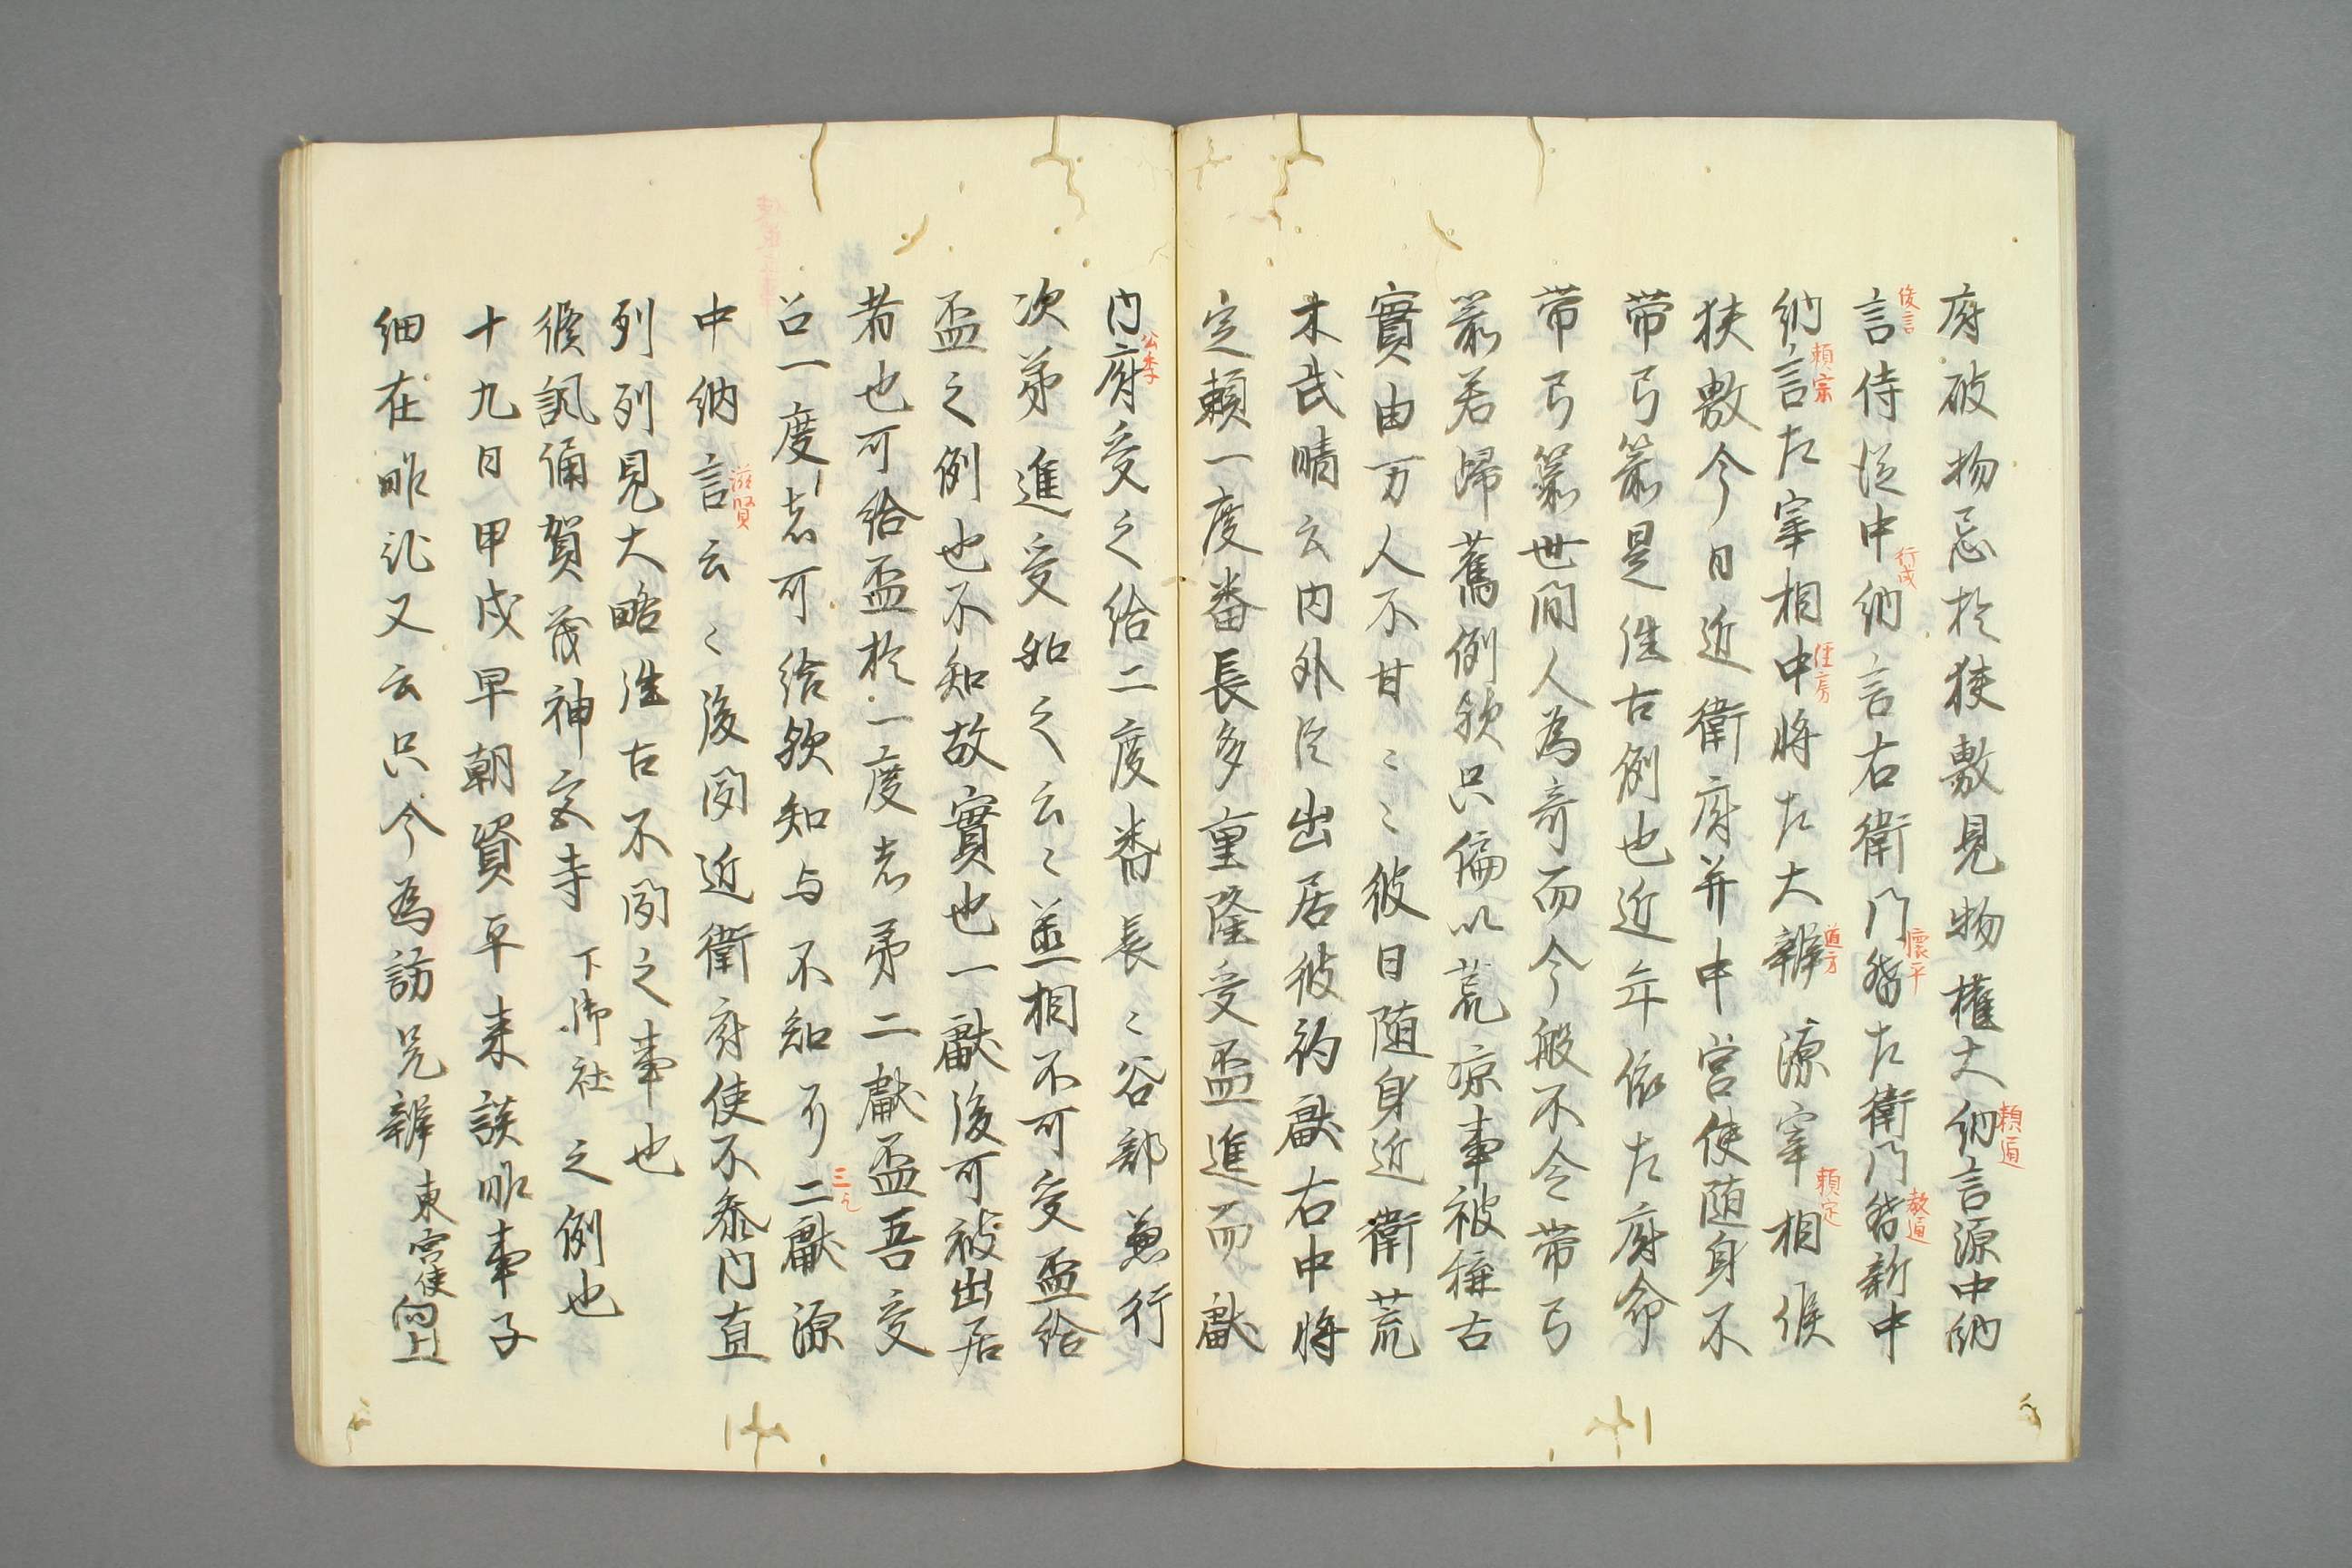 府破物忌於狭敷見物権大納言源中納
頼通
言侍従中納言右衛門督左衛門督新中
俊言
行成
懐平
教通
納言左宰相中将左大辨源宰相候
頼宗
経房
道方
頼定
狭敷今日近衛府并中宮使随身不
帯弓箭是往古例也近年依左府命
帯弓箭世間人為奇而今般不令帯弓
箭若帰舊例欤只偏以荒凉事被称古
實由万人不甘〻〻彼日随身近衛荒
木武晴云内外従出居彼初獻右中将
定頼一度番長多重隆受盃進而獻
内府受之給二度番長〻谷部兼行
公季
次第進受如之云〻並相不可受盃給
盃之例也不知故實也一獻後可被出居
者也可給盃於一度者第二獻盃吾受
召一度者可給欤知与不知了二獻源
三元
中納言云〻後聞近衛府使不参内直
滋賢
列列見大略往古不聞之事也
候諷誦賀茂神宮寺下御社之例也
十九日甲戌早朝資平来談昨事子
細在昨記又云只今為訪兄辨東宮使向上